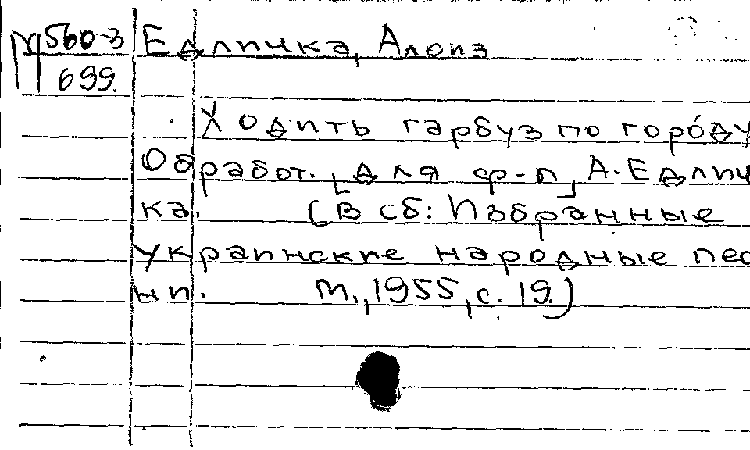 М560-3 Едличка, Алоиз
699.
Ходить гарбуз по городу
Обработ. [для ф-п] А. Едлич
ка. (В сб: Избранные
украинские народные пес
ни. М., 1955, с. 19.)